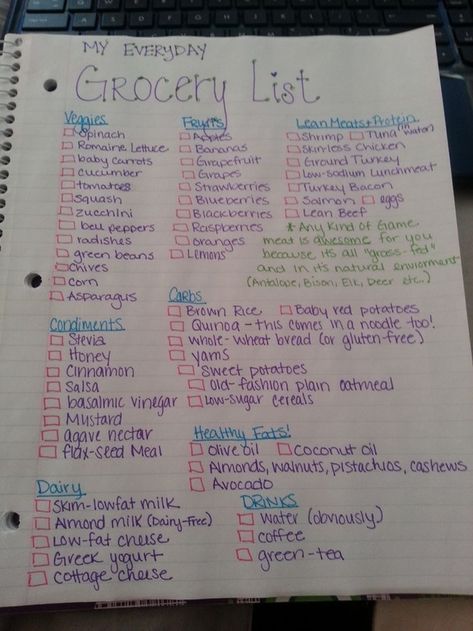 MY EVERYDAY
GROCERY LIST
Veggies
Spinach
Romaine Lettuce
baby carrots
cucumber
tomatoes
squash
zucchini
bell peppers
radishes
green beans
chives
corn
Asparagus
Fruits
Apples
Bananas
Grapefruit
Grapes
Strawberries
Blueberries
Blackberries
Raspberries
oranges
Lemons
Lean Meats + Protein
Shrimp Tuna (in water)
Skinless Chicken
Ground Turkey
Low-sodium Lunchmeat
Turkey Bacon
Salmon eggs
Lean Beef
* Any Kind of Game
meat is awesome for you
because its all "grass-fed"
and in its natural enviorment
(Antalove, Bison, Elk, Deer etc..)
Condiments
Stevia
Honey
Cinnamon
Salsa
basalmic vinegar
Mustard
agave nectar
flax-seed Meal
Carbs
Brown Rice Baby red potatoes
Quinoa - this comes in a noodle too!
whole-wheat bread (or gluten-free)
yams
Sweet potatoes
Old-fashion plain oatmeal
Low-sugar cereals
Healthy Fats!
olive oil Coconut oil
Almonds, walnuts, pistachios, cashews
Avocado
Dairy
Skim-lowfat milk
Almond milk (Dairy-Free)
Low-fat cheese
Greek yogurt
cottage cheese
DRINKS
water (obviously)
coffee
green-tea